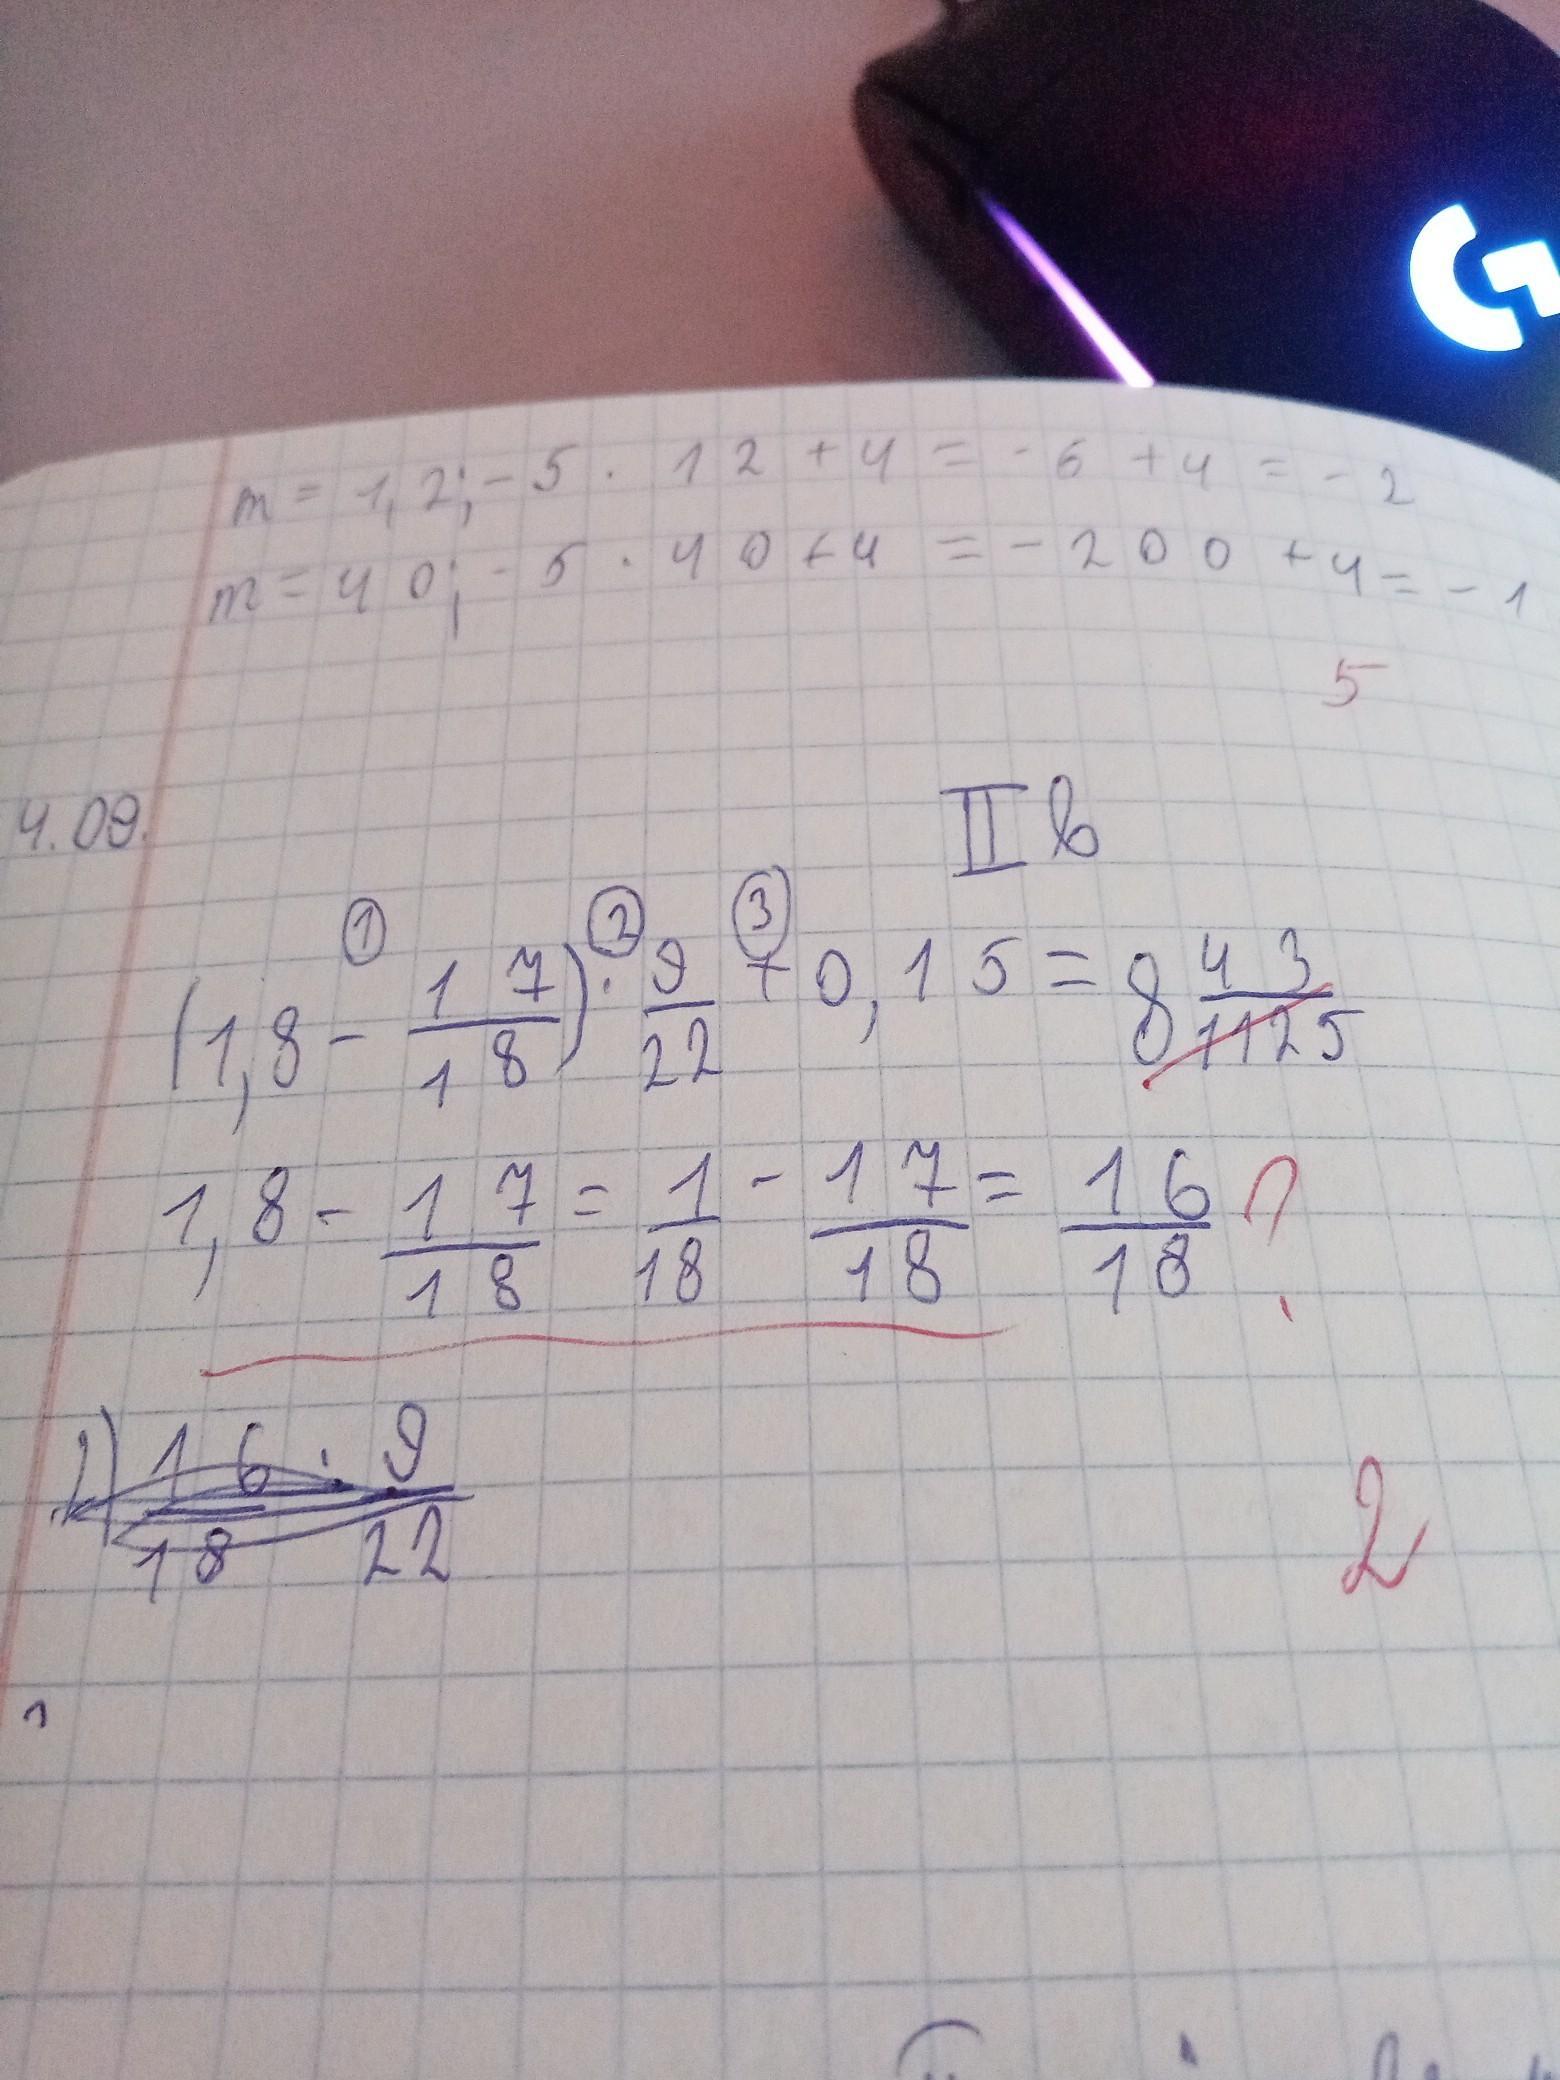 m = 1,2; -5 · 12 + 4 = -6 + 4 = -2
m = 40; -5 · 40 + 4 = -200 + 4 = -1
5
4.09.
II в
1 2 3
(1,8 - 17/18) · 9/22 + 0,15 = 8 43/1125
1,8 - 17/18 = 1/18 - 17/18 = 16/18 ?
1) 16/18 · 9/22
2